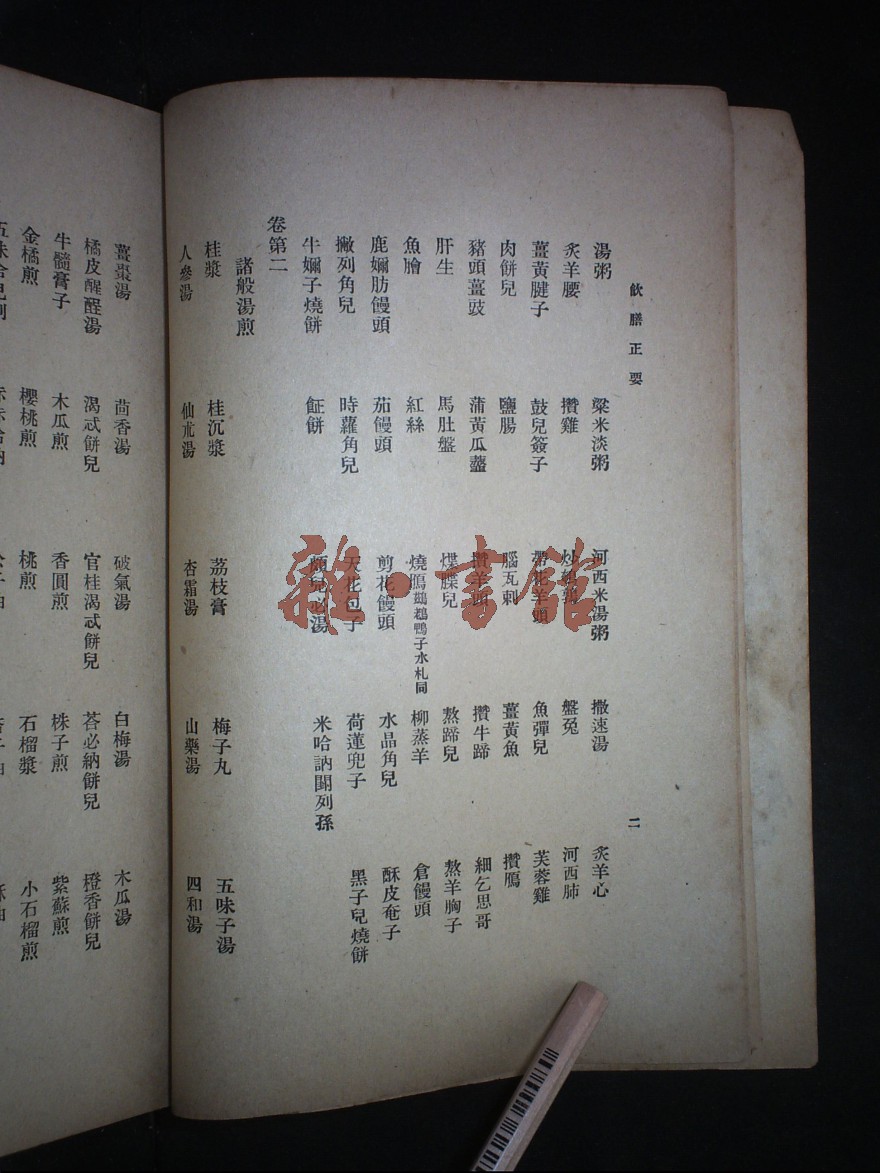 飲膳正要 二
湯粥 粱米淡粥 河西米湯粥 撒速湯 炙羊心
炙羊腰 攢雞 炒鵪鶉 盤兔 河西肺
薑黃腱子 鼓兒簽子 帶花羊頭 魚彈兒 芙蓉雞
肉餅兒 鹽腸 腦瓦剌 薑黃魚 攢鴈
豬頭薑豉 蒲黃瓜虀 攢羊頭 攢牛蹄 細乞思哥
肝生 馬肚盤 煠䐑兒 熬蹄兒 熬羊胸子
魚膾 紅絲 燒鴈鷀鵝鴨子水札同 柳蒸羊 倉饅頭
鹿嬭肪饅頭 茄饅頭 剪花饅頭 水晶角兒 酥皮奄子
撇列角兒 時蘿角兒 天花包子 荷蓮兜子 黑子兒燒餅
牛嬭子燒餅 鉦餅 頗兒必湯 米哈訥闊列孫
卷第二
諸般湯煎
桂漿 桂沉漿 荔枝膏 梅子丸 五味子湯
人參湯 仙朮湯 杏霜湯 山藥湯 四和湯
薑棗湯 茴香湯 破氣湯 白梅湯 木瓜湯
橘皮醒酲湯 渴忒餅兒 官桂渴忒餅兒 荅必納餅兒 橙香餅兒
牛髓膏子 木瓜煎 香圓煎 株子煎 紫蘇煎
金橘煎 櫻桃煎 桃煎 石榴漿 小石榴煎
雜·書館